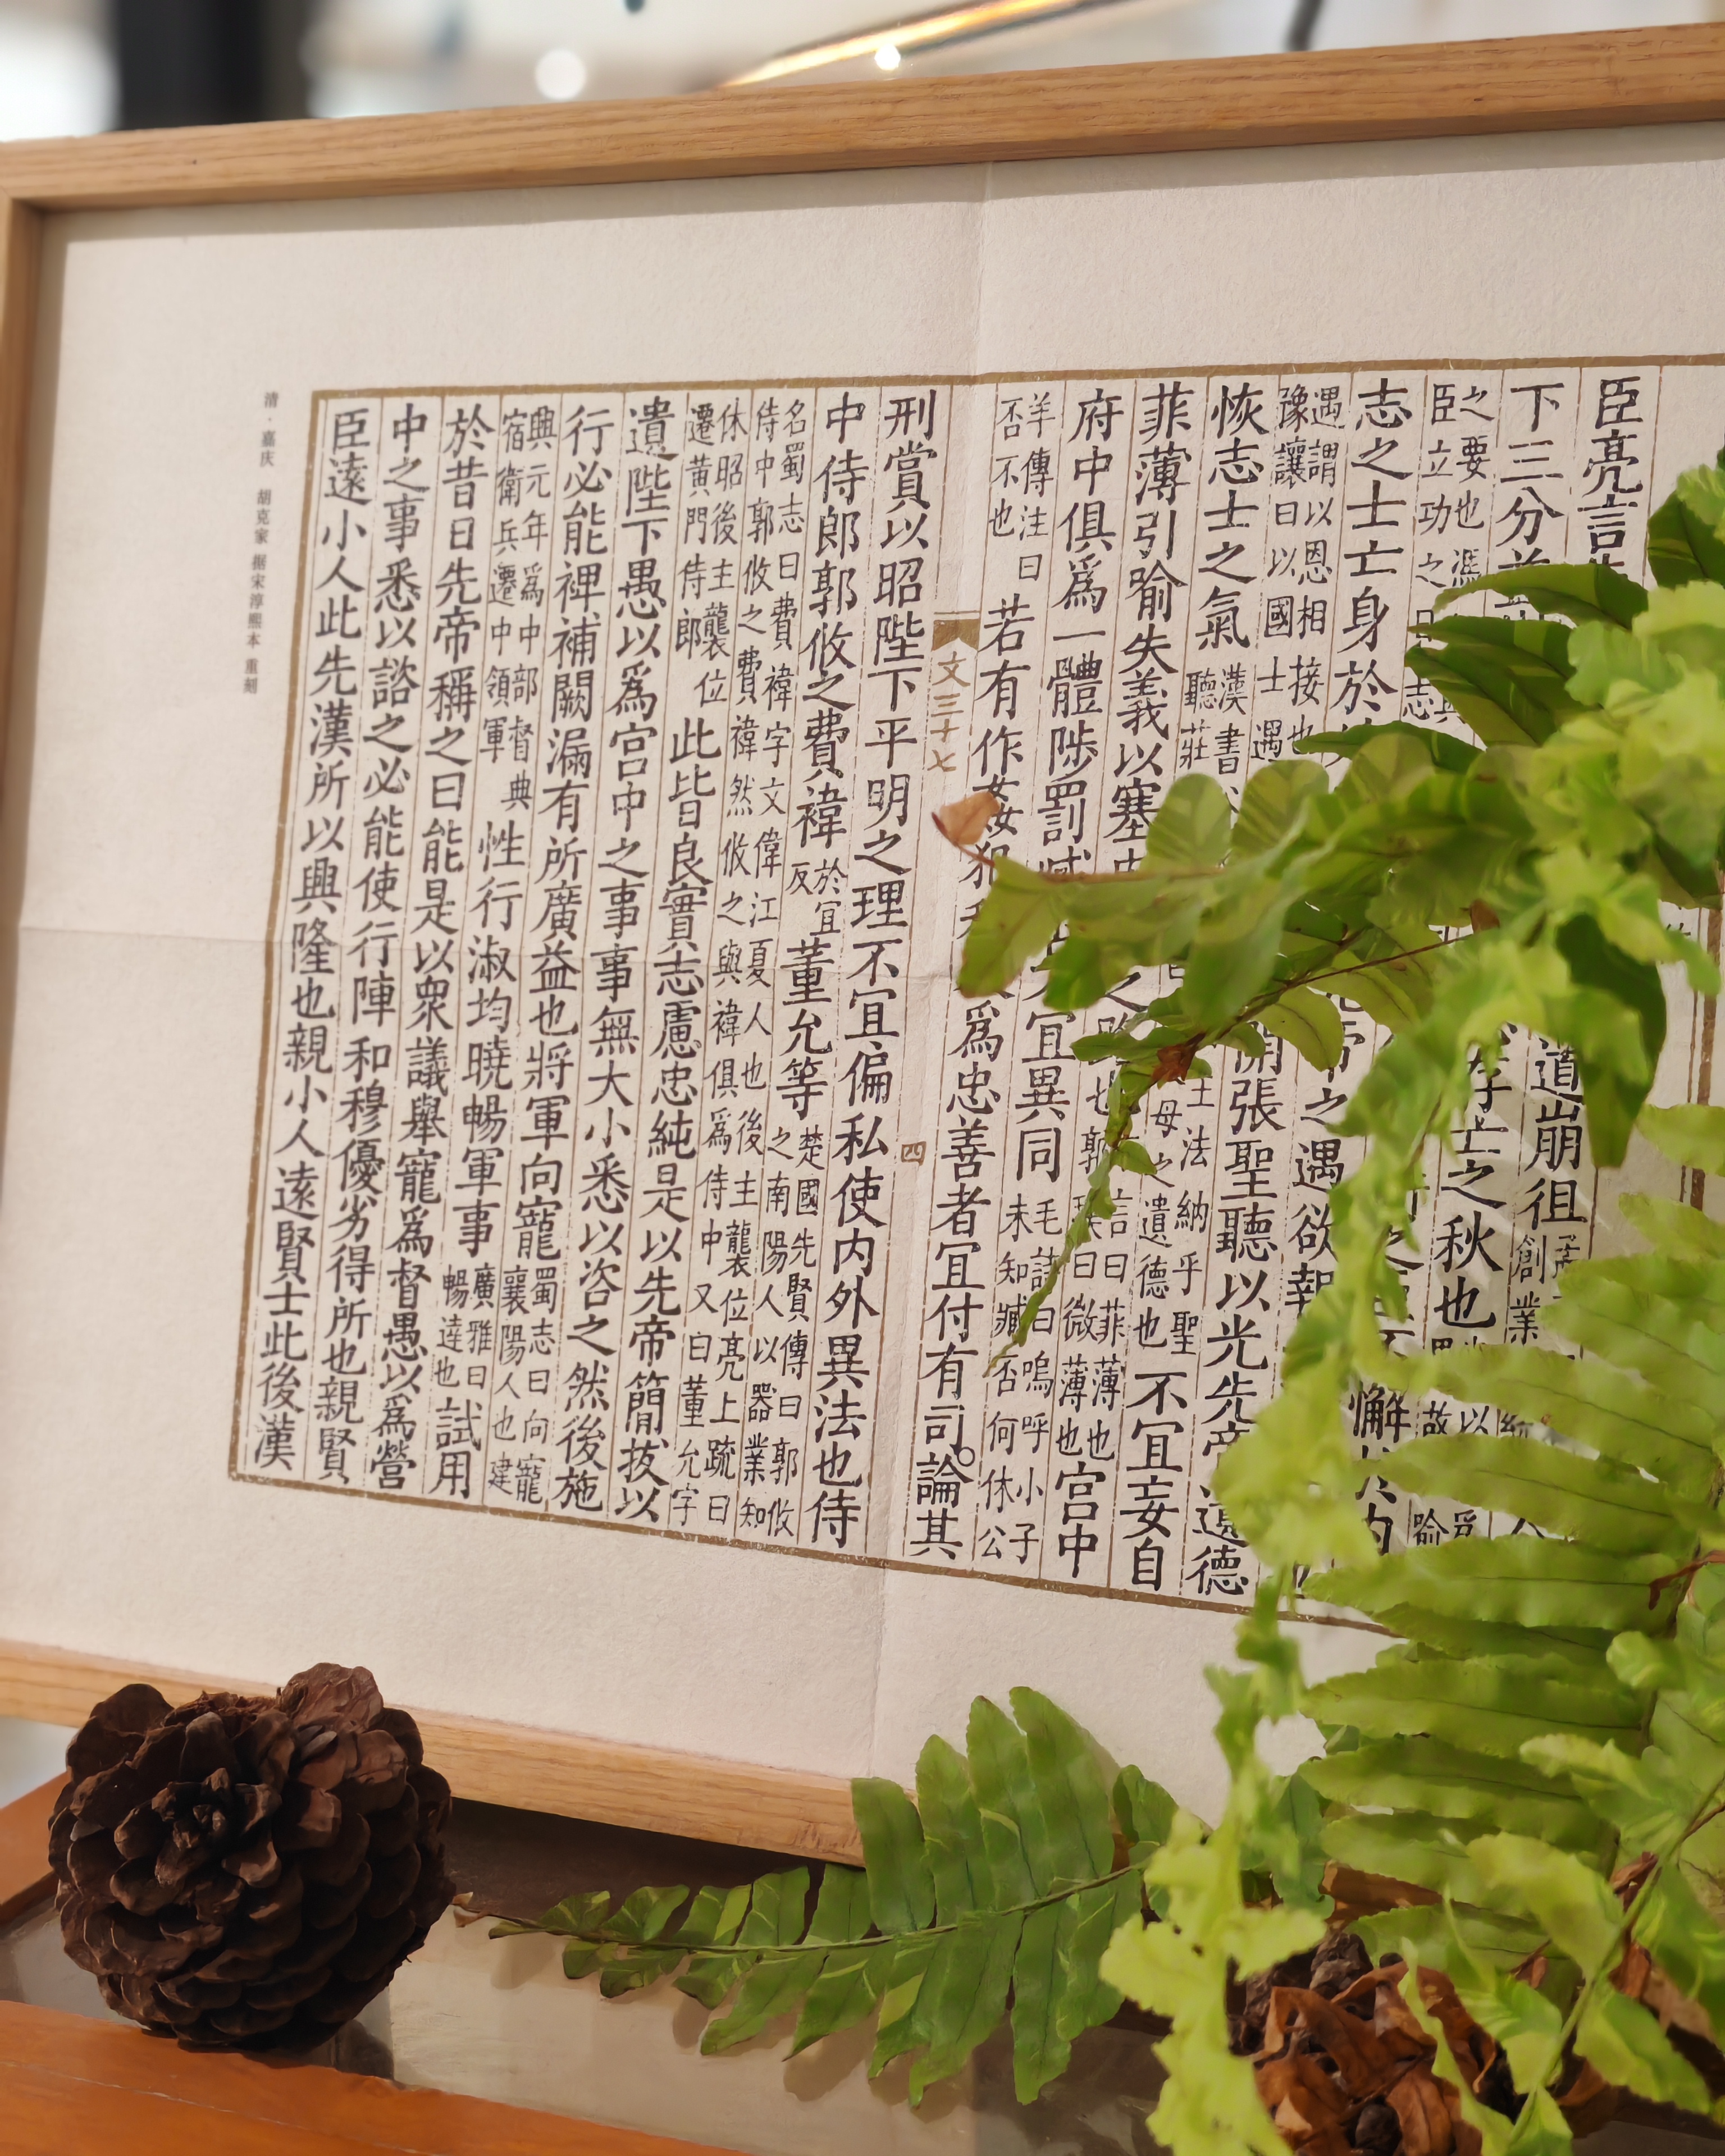 臣亮言
道崩徂
創業
下三分
之秋也
之要也馮
臣立功之日
志
懈
志之士亡身於
帝之遇欲報
遇謂以恩相接也
豫讓曰以國士遇
開張聖聽以光先帝遺德
恢志士之氣
漢書
聽莊
王法納乎聖
母之遺德也
不宜妄自
菲薄引喻失義以塞
之路也
言曰菲薄也
曰微薄也
宮中
府中俱爲一體陟罰臧
宜異同
毛詩曰嗚呼小子
未知臧否何休公
羊傳注曰
否不也
若有作姦犯
爲忠善者宜付有司論其
文三十七
四
刑賞以昭陛下平明之理不宜偏私使内外異法也侍
中侍郎郭攸之費褘
於宜
反
董允等
楚國先賢傳曰郭攸
之南陽人以器業知
名蜀志曰費褘字文偉江夏人也後主襲位亮上疏曰
侍中郭攸之費褘然攸之與褘俱爲侍中又曰董允字
休昭後主襲位
遷黄門侍郎
此皆良實志慮忠純是以先帝簡拔以
遺陛下愚以爲宫中之事事無大小悉以咨之然後施
行必能裨補闕漏有所廣益也將軍向寵
蜀志曰向寵
襄陽人也建
興元年爲中部督典
宿衛兵遷中領軍
性行淑均曉暢軍事
廣雅曰
暢達也
試用
於昔日先帝稱之曰能是以衆議舉寵爲督愚以爲營
中之事悉以諮之必能使行陣和穆優劣得所也親賢
臣遠小人此先漢所以興隆也親小人遠賢士此後漢
清·嘉庆 胡克家 据宋淳熙本 重刻